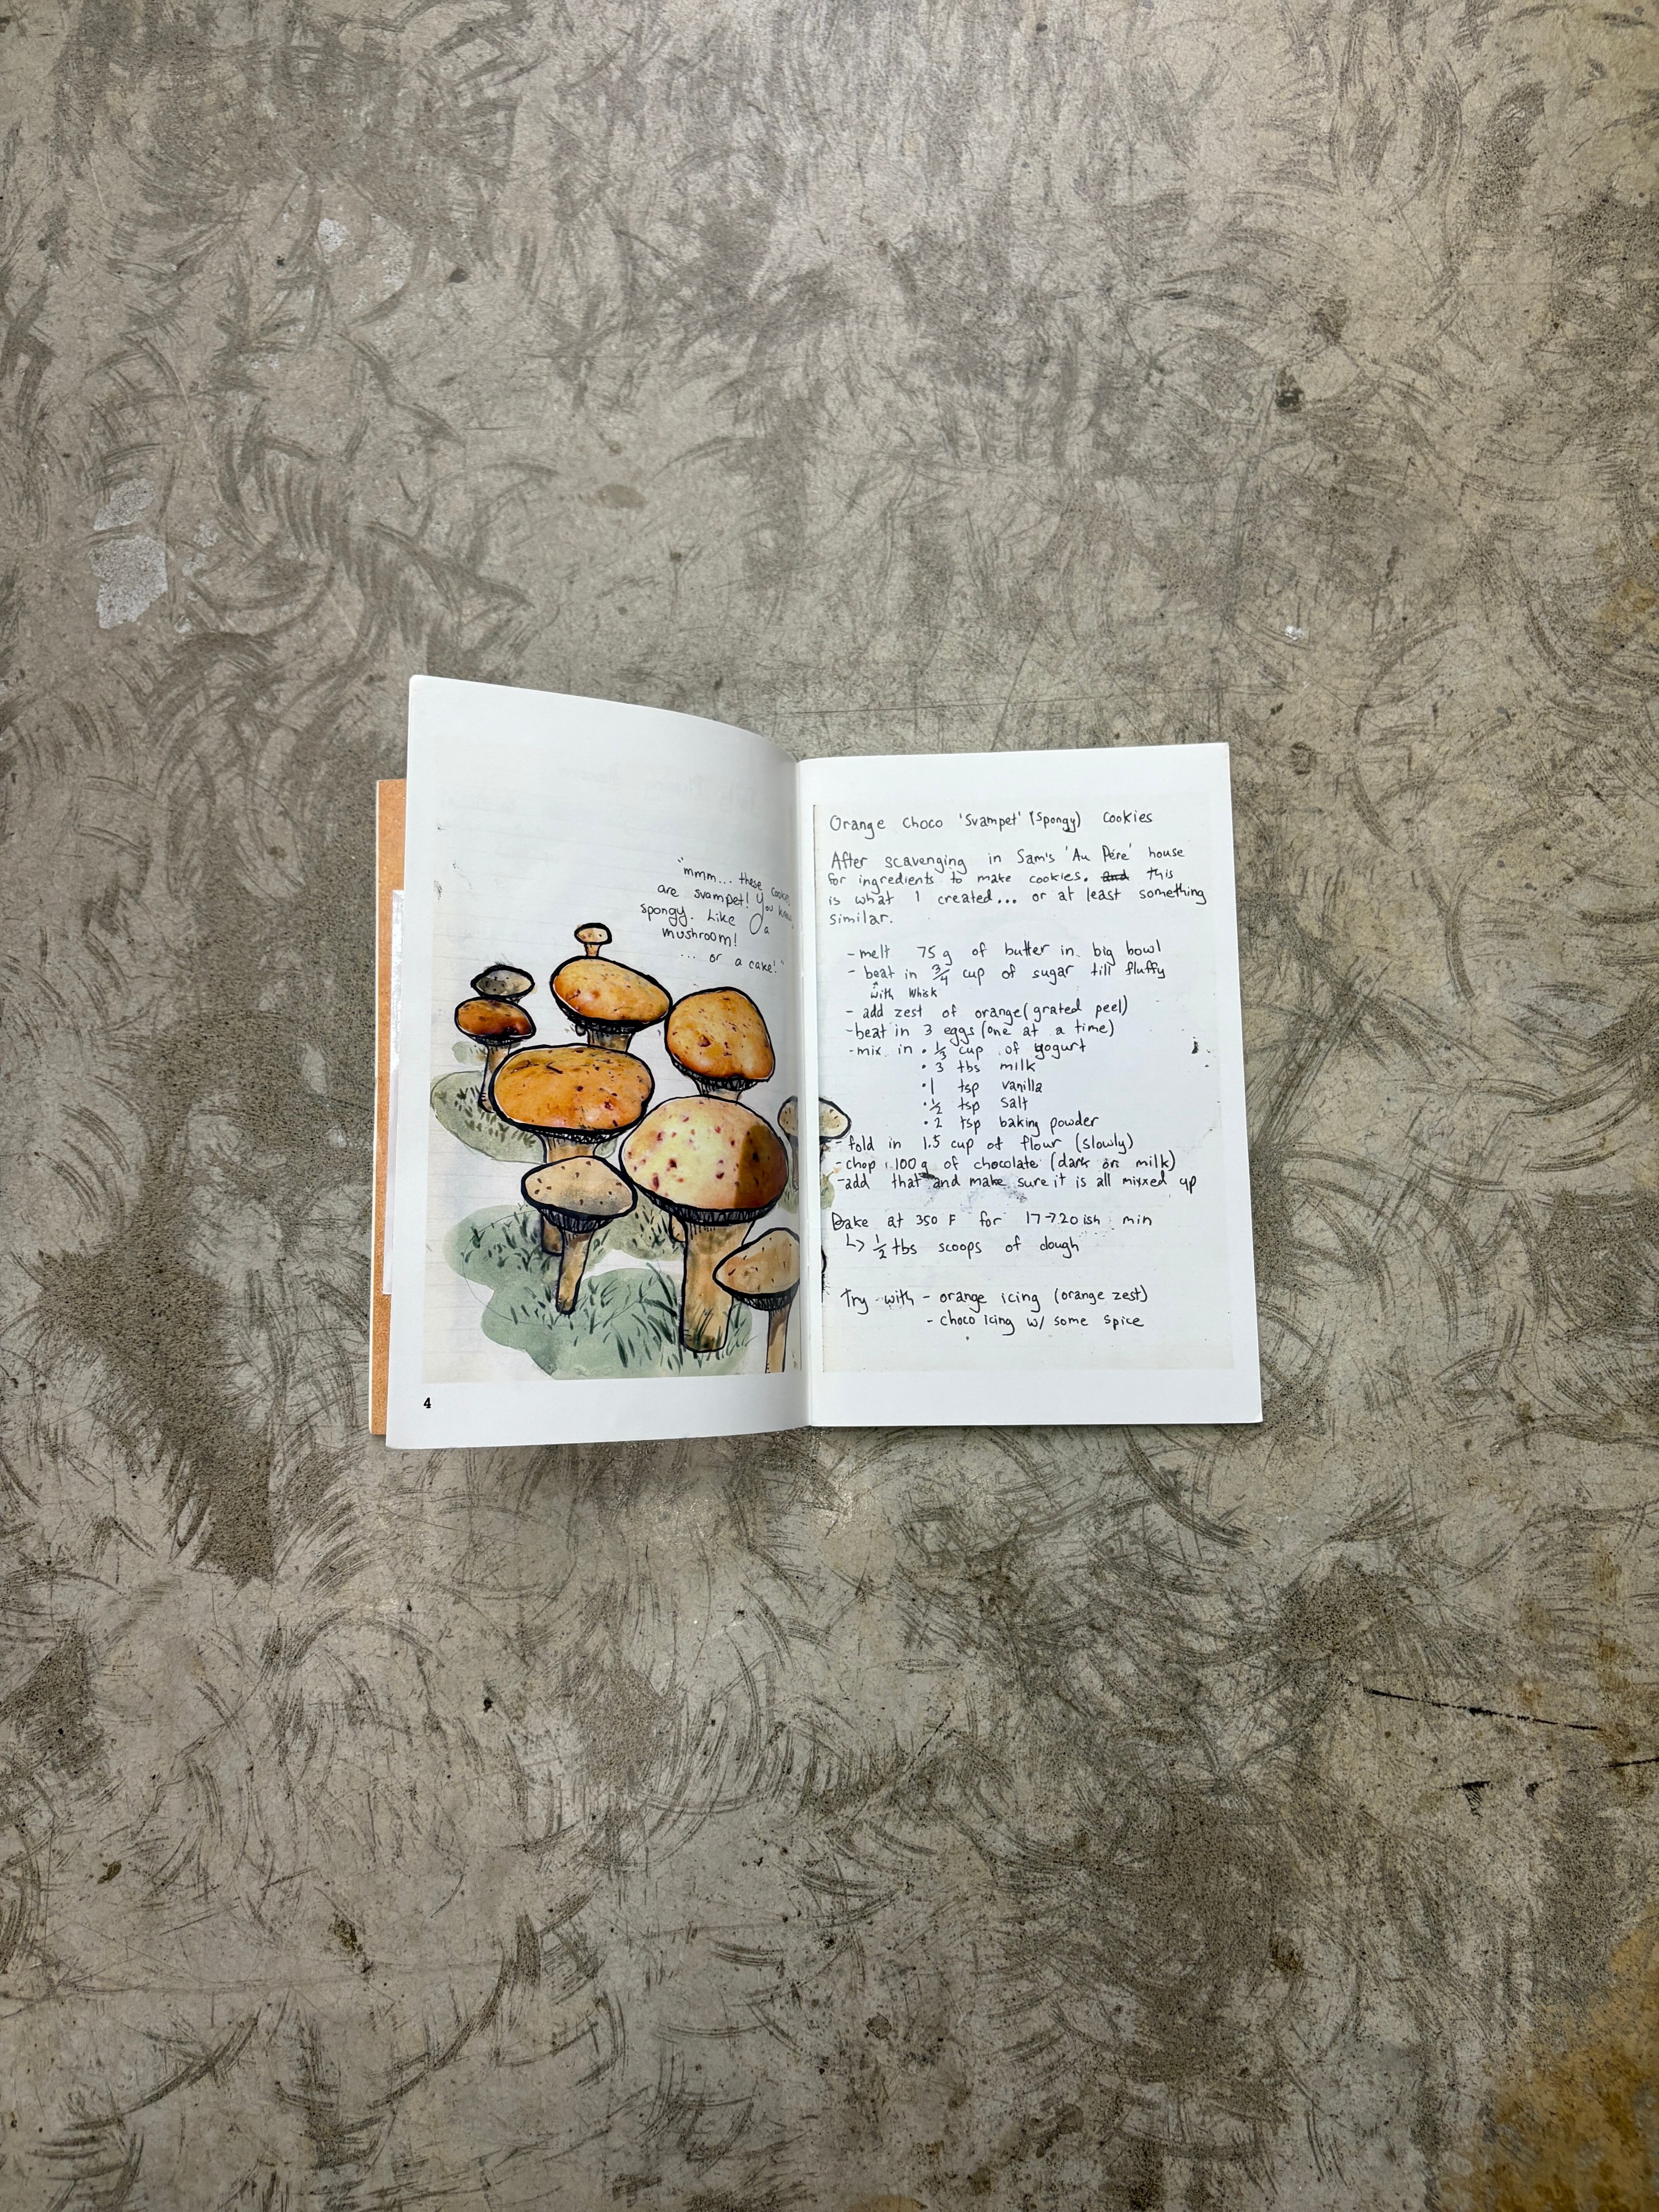 "mmm... these cookies
are svampet! You know,
spongy. Like a
mushroom!
... or a cake!"
4
Orange Choco 'Svampet' (Spongy) Cookies
After scavenging in Sam's 'Au Pére' house
for ingredients to make cookies. and this
is what I created... or at least something
similar.
- melt 75 g of butter in big bowl
- beat in 3/4 cup of sugar till fluffy
with whisk
- add zest of orange (grated peel)
- beat in 3 eggs (one at a time)
- mix in • 1/3 cup of yogurt
• 3 tbs milk
• 1 tsp vanilla
• 1/2 tsp salt
• 2 tsp baking powder
- fold in 1.5 cup of flour (slowly)
- chop 100g of chocolate (dark or milk)
- add that and make sure it is all mixxed up
Bake at 350 F for 17→20 ish min
↳ 1/2 tbs scoops of dough
Try with - orange icing (orange zest)
- choco icing w/ some spice